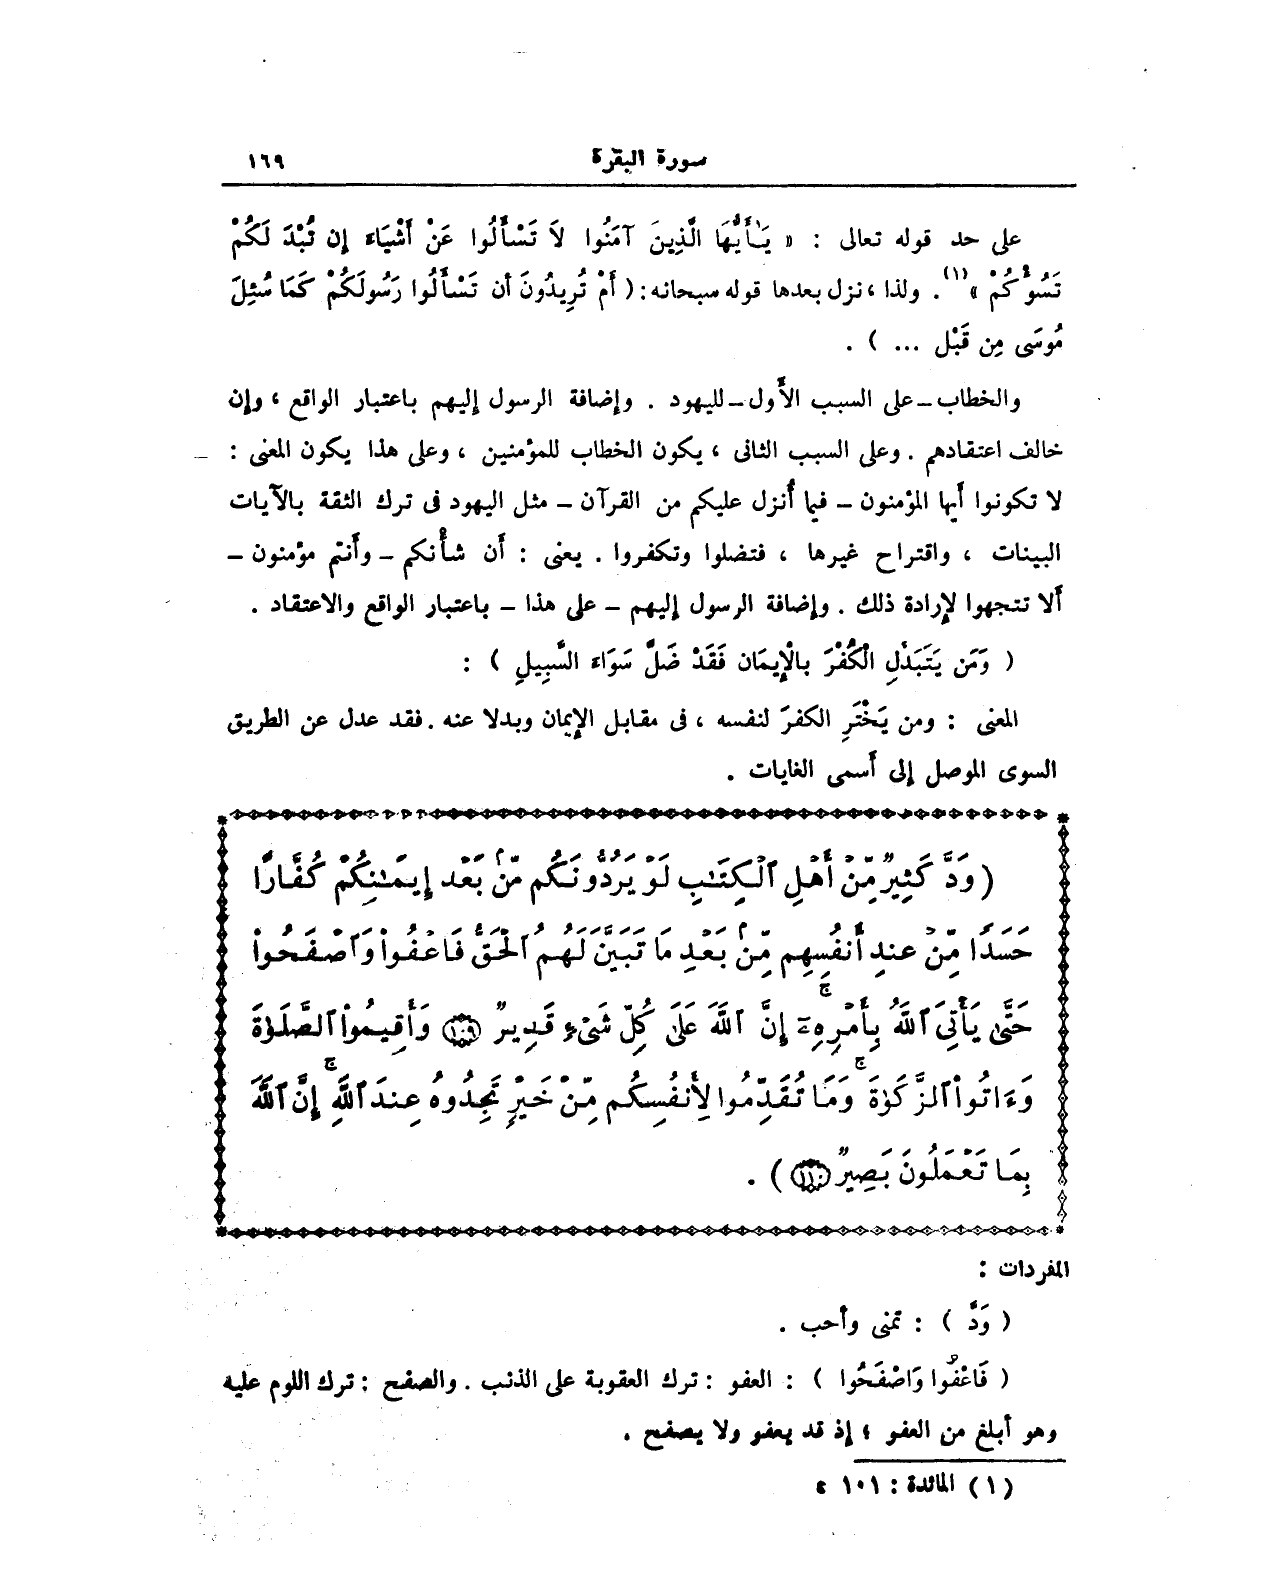 سورة البقرة ١٦٩
على حد قوله تعالى : « يَـٰأَيُّهَا الَّذِينَ آمَنُوا لاَ تَسْأَلُوا عَنْ أَشْيَاءَ إن تُبْدَ لَكُمْ
تَسُؤْكُمْ »(١). ولذا ، نزل بعدها قوله سبحانه : ( أَمْ تُرِيدُونَ أن تَسْأَلُوا رَسُولَكُمْ كَمَا سُئِلَ
مُوسَى مِن قَبْل ... ) .
والخطاب ــ على السبب الأَول ــ لليهود . وإضافة الرسول إليهم باعتبار الواقع ، وإن
خالف اعتقادهم . وعلى السبب الثانى ، يكون الخطاب للمؤمنين ، وعلى هذا يكون المعنى :
لا تكونوا أيها المؤمنون ــ فيما أُنزل عليكم من القرآن ــ مثل اليهود فى ترك الثقة بالآيات
البينات ، واقتراح غيرها ، فتضلوا وتكفروا . يعنى : أَن شأْنكم ــ وأَنتم مؤمنون ــ
أَلا تتجهوا لإرادة ذلك . وإضافة الرسول إليهم ــ على هذا ــ باعتبار الواقع والاعتقاد .
( وَمَن يَتَبَدَّلِ الْكُفْرَ بالْإِيمَان فَقَدْ ضَلَّ سَوَاءَ السَّبِيلِ ) :
المعنى : ومن يَخْتَرِ الكفرَ لنفسه ، فى مقابل الإيمان وبدلا عنه . فقد عدل عن الطريق
السوى الموصل إلى أَسمى الغايات .
( وَدَّ كَثِيرٌ مِّنْ أَهْلِ ٱلْكِتَـٰبِ لَوْ يَرُدُّونَكُم مِّنۢ بَعْدِ إِيمَـٰنِكُمْ كُفَّارًا
حَسَدًا مِّنْ عِندِ أَنفُسِهِم مِّنۢ بَعْدِ مَا تَبَيَّنَ لَهُمُ ٱلْحَقُّ فَٱعْفُوا۟ وَٱصْفَحُوا۟
حَتَّىٰ يَأْتِىَ ٱللَّهُ بِأَمْرِهِۦٓ ۗ إِنَّ ٱللَّهَ عَلَىٰ كُلِّ شَىْءٍ قَدِيرٌ ﴿١٠٩﴾ وَأَقِيمُوا۟ ٱلصَّلَوٰةَ
وَءَاتُوا۟ ٱلزَّكَوٰةَ ۚ وَمَا تُقَدِّمُوا لِأَنفُسِكُم مِّنْ خَيْرٍ تَجِدُوهُ عِندَ ٱللَّهِ ۚ إِنَّ ٱللَّهَ
بِمَا تَعْمَلُونَ بَصِيرٌ ﴿١١٠﴾ ) .
المفردات :
( وَدَّ ) : تمنى وأَحب .
( فَاعْفُوا وَاصْفَحُوا ) : العفو : ترك العقوبة على الذنب . والصفح : ترك اللوم عليه
وهو أَبلغ من العفو ؛ إذ قد يعفو ولا يصفح .
(١) المائدة : ١٠١